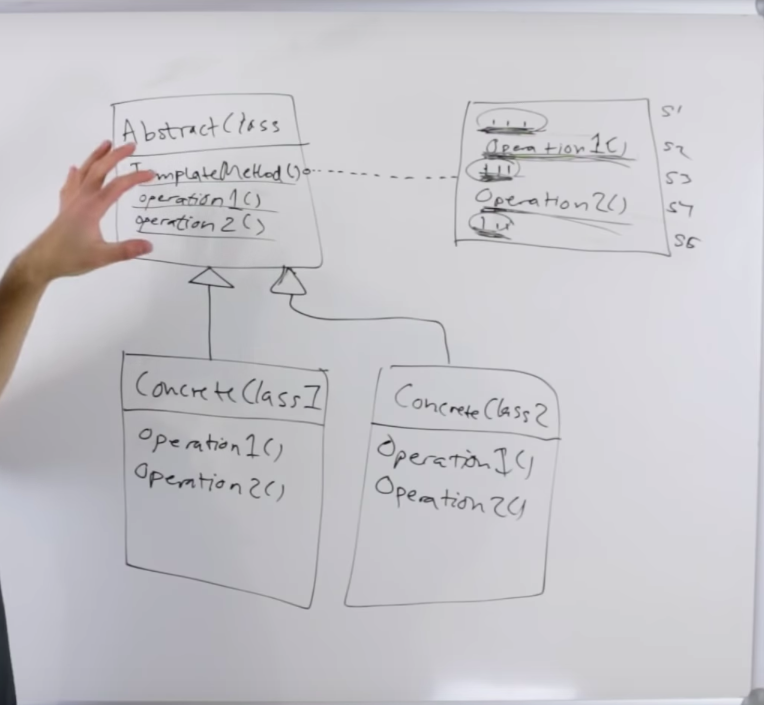 AbstractClass
TemplateMethod()
operation1()
operation2()
...
Operation1()
...
Operation2()
...
S1
S2
S3
S4
S5
ConcreteClass1
Operation1()
Operation2()
ConcreteClass2
Operation1()
Operation2()